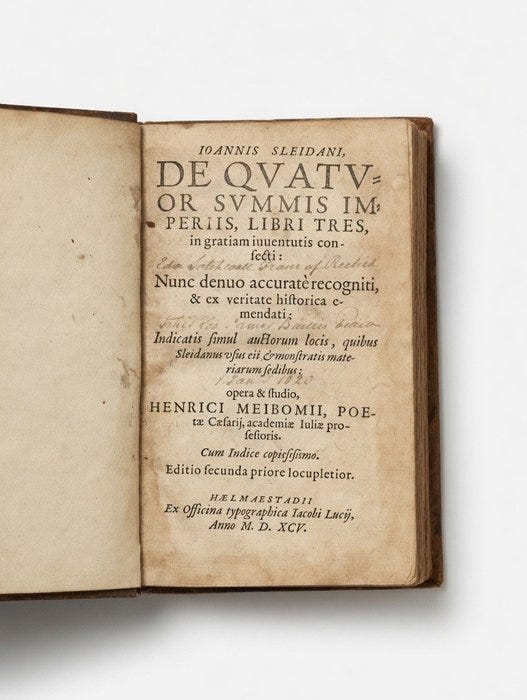 IOANNIS SLEIDANI,
DE QVATV=
OR SVMMIS IM-
PERIIS, LIBRI TRES,
in gratiam iuuentutis con-
fecti:
of
Nunc denuo accuratè recogniti,
& ex veritate hiſtorica e-
mendati:
James
Indicatis ſimul auctorum locis, quibus
Sleidanus vſus eſt & monſtratis mate-
riarum ſedibus:
1820
opera & ſtudio,
HENRICI MEIBOMII, POE-
tæ Cæſarij, academiæ Iuliæ pro-
feſſoris.
Cum Indice copiſſiſimo.
Editio ſecunda priore locupletior.
HÆLMAESTADII
Ex Officina typographica Iacobi Lucij,
Anno M. D. XCV.